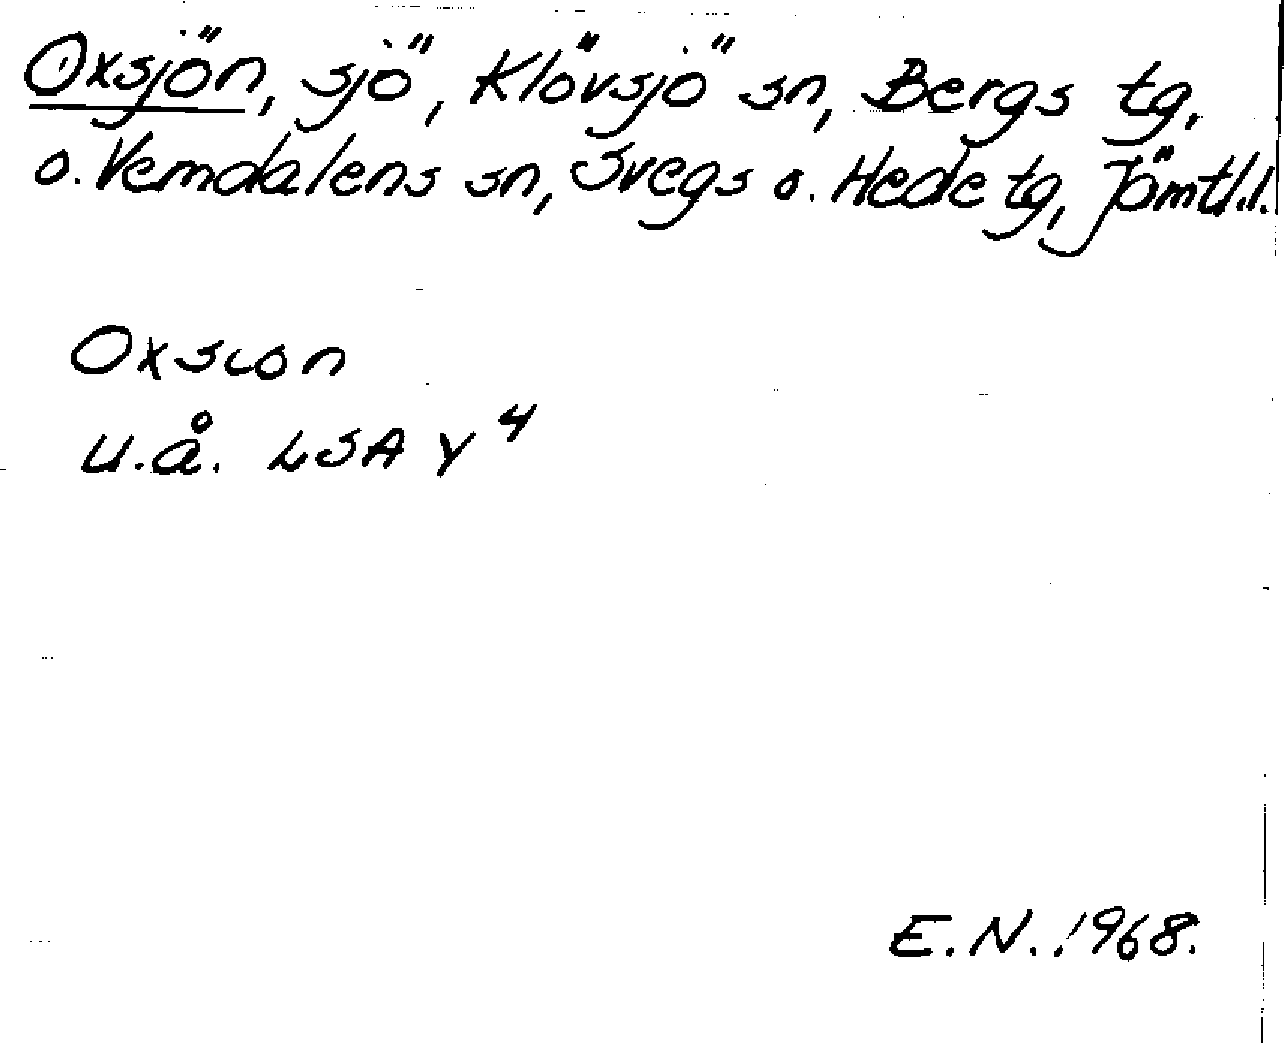 Oxsjön, sjö, Klövsjö sn, Bergs tg,
o. Vemdalens sn, Svegs o. Hede tg, Jämtl.l.
Oxscon
u.å. LSA Y 4
E.N. 1968.